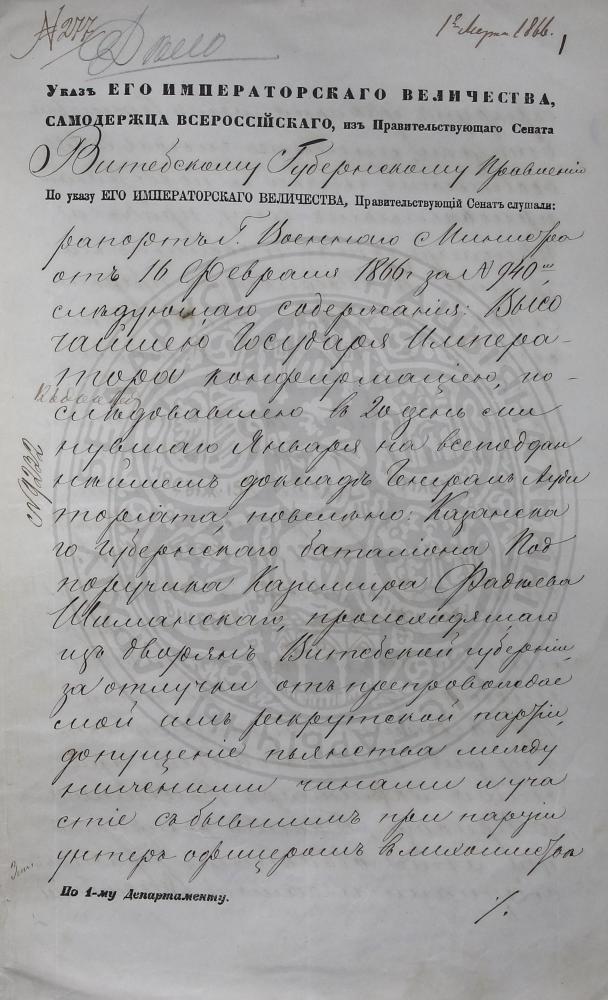 № 277
Дѣло
1866.
1
Указъ ЕГО ИМПЕРАТОРСКАГО ВЕЛИЧЕСТВА,
САМОДЕРЖЦА ВСЕРОССІЙСКАГО, изъ Правительствующаго Сената
Витебскому Губернскому Правленію
По указу ЕГО ИМПЕРАТОРСКАГО ВЕЛИЧЕСТВА, Правительствующій Сенатъ слушали:
рапортъ Г. Военнаго Министра
отъ 16 Февраля 1866 г за № 940
слѣдующаго содержанія: Высо
чайшею Государя Импера-
тора конфирмаціею, по-
слѣдовавшею въ 20 день ми
нувшаго Января на всеподдан
нѣйшемъ докладѣ Генералъ Ауди
торіата, повелѣно: Казанска
го Губернскаго баталіона Под
поручика Казимира Фадѣева
Шиманскаго, происходящаго
изъ дворянъ Витебской губерніи,
за отлучки отъ препровождае
мой имъ рекрутской партіи,
допущеніе пьянства между
нижними чинами и уча
стіе съ бывшимъ при партіи
унтеръ офицеромъ въ лихоимства
По 1-му Департаменту.